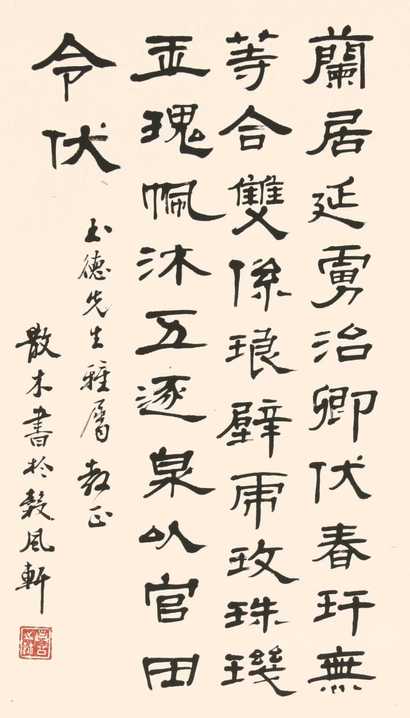 蘭居延虜治卿伏春玕無
等合雙係琅壁乕玫珠璣
瑰沐五逐泉以官田
令伏
玉德先生雅屬 教正
散木書於穀風軒